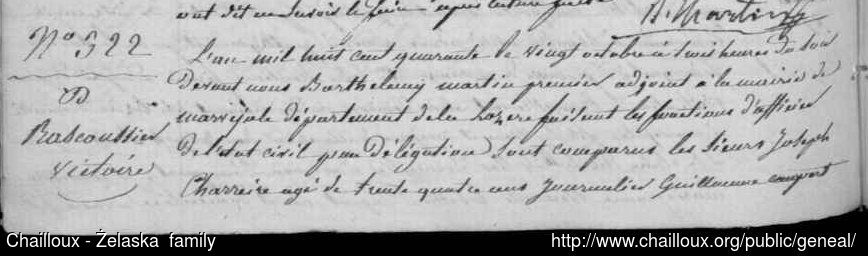 ont dit ne savoir le faire après lecture faite
B. Martin
N° 522
D
Rascoussier
Victoire
L'an mil huit cent quarante le vingt octobre à trois heures du soir
Devant nous Barthelemy martin premier adjoint à la mairie de
marvejols département de la Lozere faisant les fonctions d'officier
de l'etat civil par Délégation sont comparus les sieurs Joseph
Charreire agé de trente quatre ans Journalier Guillaume
Chailloux - Żelaska family
http://www.chailloux.org/public/geneal/